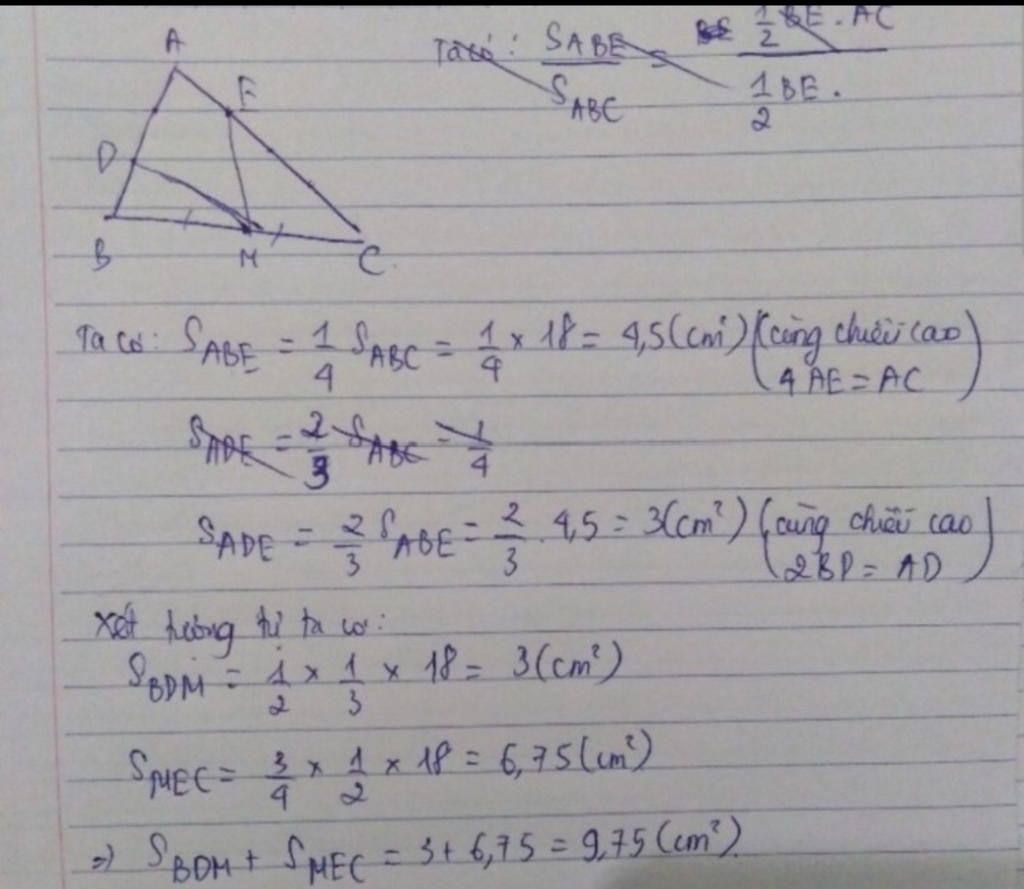 A
E
D
B
M
C
Ta có: S_ABE / S_ABC = 1/2 BE . AC / 1/2 BE .
Ta có: S_ABE = 1/4 S_ABC = 1/4 × 18 = 4,5 (cm²) (cùng chiều cao
4 AE = AC)
S_ADE = 2/3 S_ABC = 1/4
S_ADE = 2/3 S_ABE = 2/3 . 4,5 = 3 (cm²) (cùng chiều cao
2BD = AD)
Xét tương tự ta có:
S_BDM = 1/2 × 1/3 × 18 = 3 (cm²)
S_MEC = 3/4 × 1/2 × 18 = 6,75 (cm²)
=> S_BDM + S_MEC = 3 + 6,75 = 9,75 (cm²)